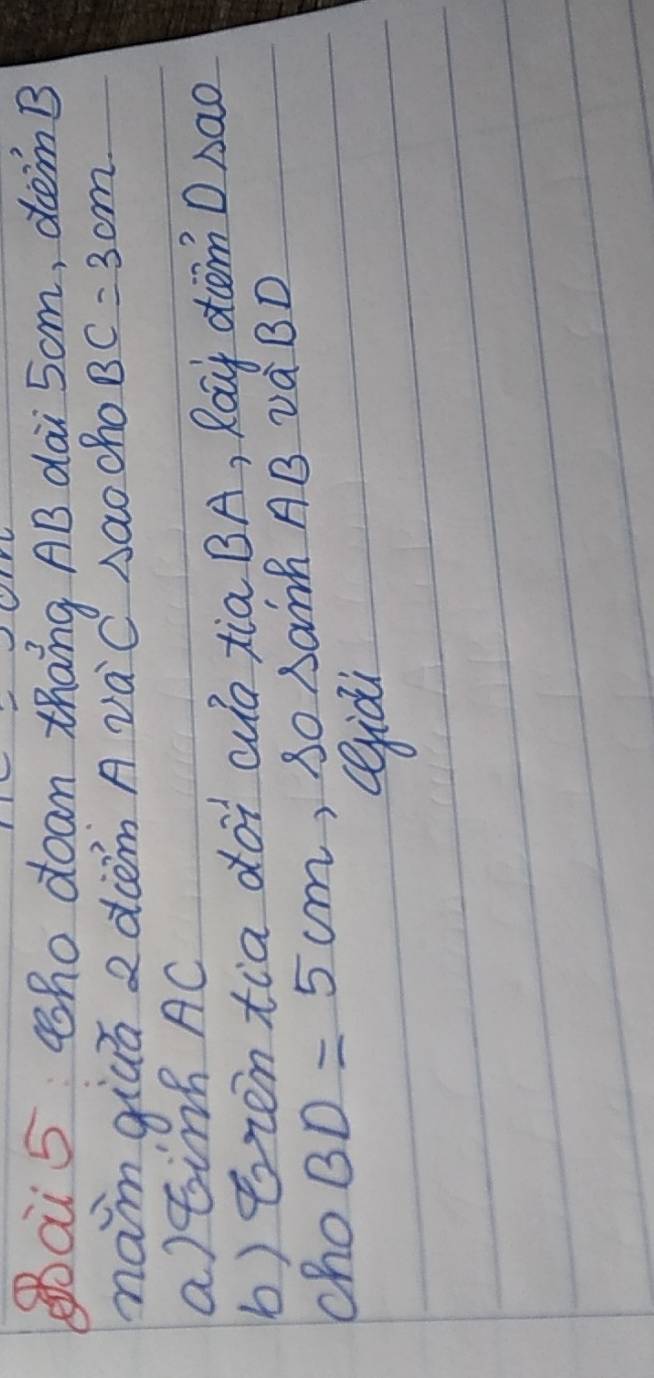 Bài 5: Cho đoạn thẳng AB dài 5cm, điểm B
nằm giữa 2 điểm A và C sao cho BC = 3cm
a) Tính AC
b) Trên tia đối của tia BA, lấy điểm D sao
cho BD = 5cm, so sánh AB và BD
Giải